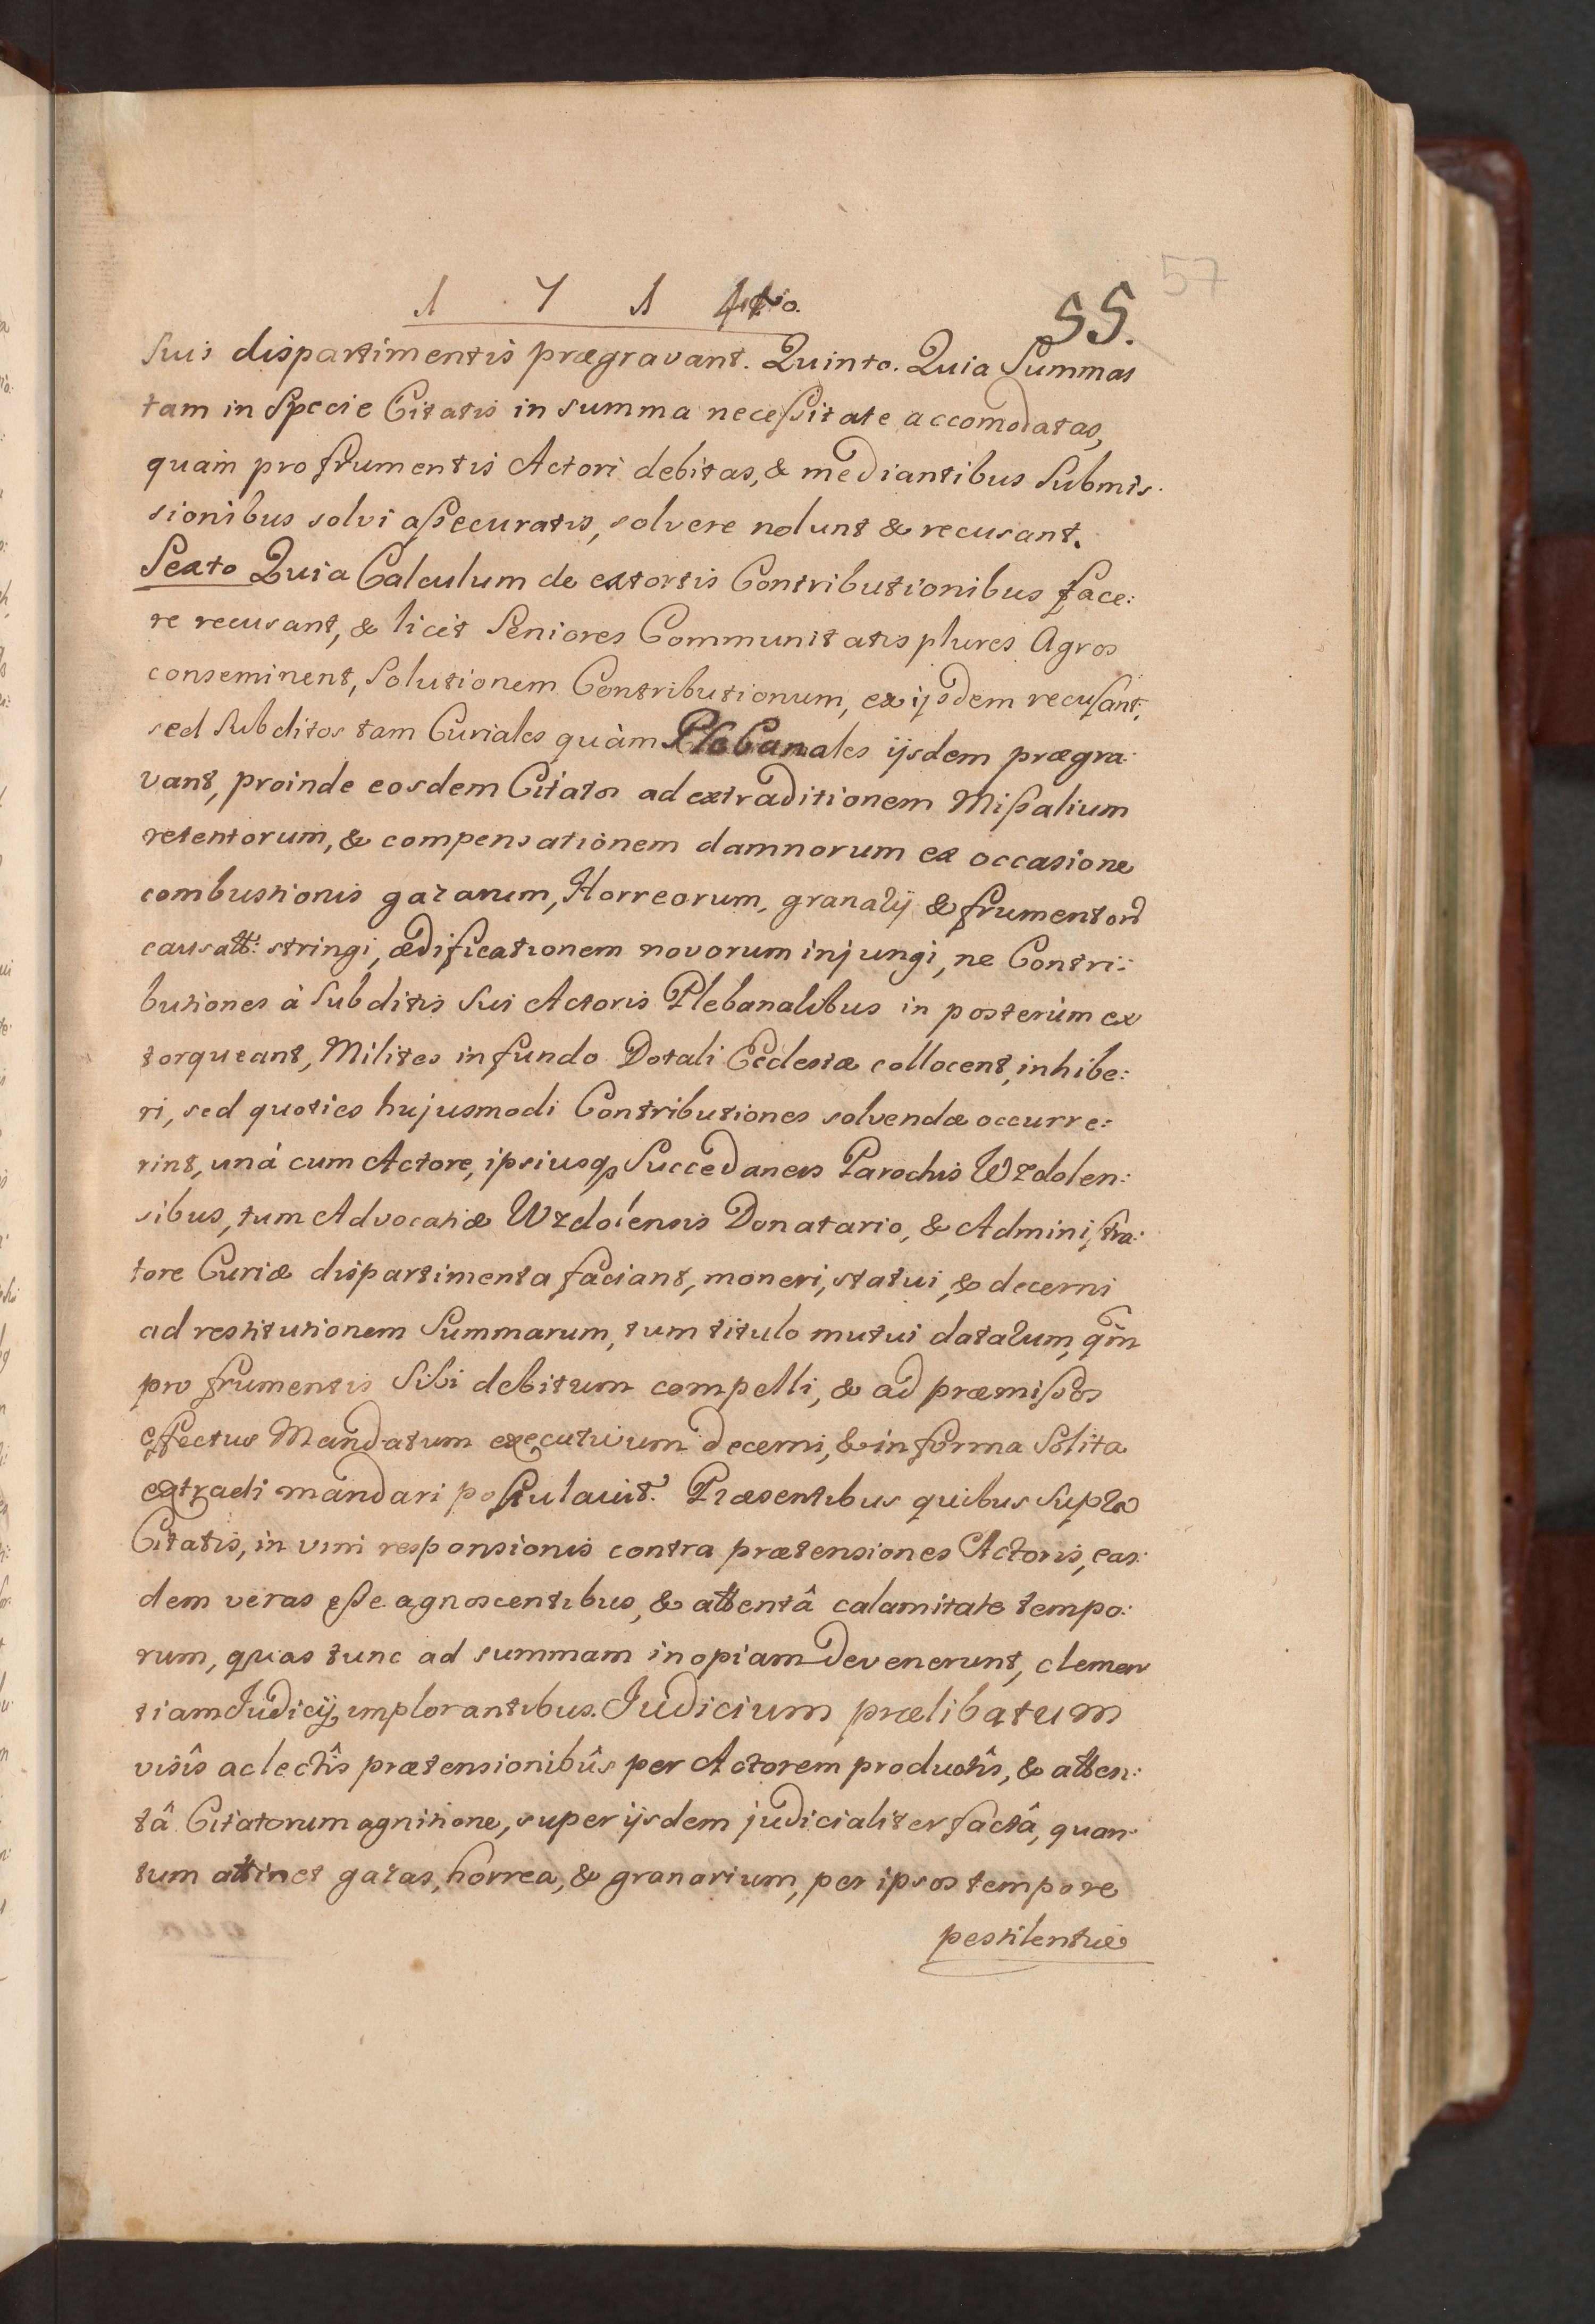 1 7 1 4to.
55.
57
suis dispartimentis prægravant. Quinto. Quia Summas
tam in Specie Citatis in summa necessitate accomodatas,
quam pro frumentis Actori debitas, & mediantibus Submis-
sionibus solvi assecuratis, solvere nolunt & recusant.
Sexto Quia Calculum de extortis Contributionibus face:
re recusant, & licet Seniores Communitatis plures Agros
conseminent, Solutionem Contributionum, ex ijsdem recusant,
sed Subditos tam Curiales quàm Plebanales ijsdem prægra:
vant, proinde eosdem Citatos ad extraditionem Missalium
retentorum, & compensationem damnorum ex occasione
combustionis gazarum, Horreorum, granarij & frumentorũ
causatt: stringi, ædificationem novorum injungi, ne Contri:
butiones à Subditis Sui Actoris Plebanalibus in posterùm ex
torqueant, Milites in fundo Dotali Ecclesiæ collocent, inhibe:
ri, sed quoties hujusmodi Contributiones solvendæ occurre:
rint, unà cum Actore, ipsiusq₃ Succedaneis Parochis Wzdolen:
sibus, tum Advocatiæ Wzdolensis Donatario, & Administra:
tore Curiæ dispartimenta faciant, moneri, statui, & decerni
ad restitutionem Summarum, tum titulo mutui datarum, qm̃
pro frumentis Sibi debitum compelli, & ad præmissos
effectus Mandatum executivum decerni, & in forma Solita
extradi mandari postulavit. Præsentibus quibus Supra
Citatis, in vim responsionis contra prætensiones Actoris, eas:
dem veras esse agnoscentibus, & attentâ calamitate tempo:
rum, quas tunc ad summam inopiam devenerunt, clemen
tiam Judicij implorantibus. Judicium prælibatum
visîs ac lectîs prætensionibûs per Actorem productîs, & atten:
tâ Citatorum agnitione, super ijsdem judicialiter factâ, quan:
tum attinet gazas, horrea, & granarium, per ipsos tempore
pestilentiæ